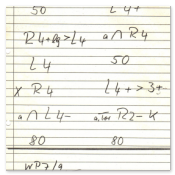 50 L4+
R4+Rg>L4 a∩R4
L4 50
x R4 L4+>3+
a∩L4- R2-K
80 80
WP7/9